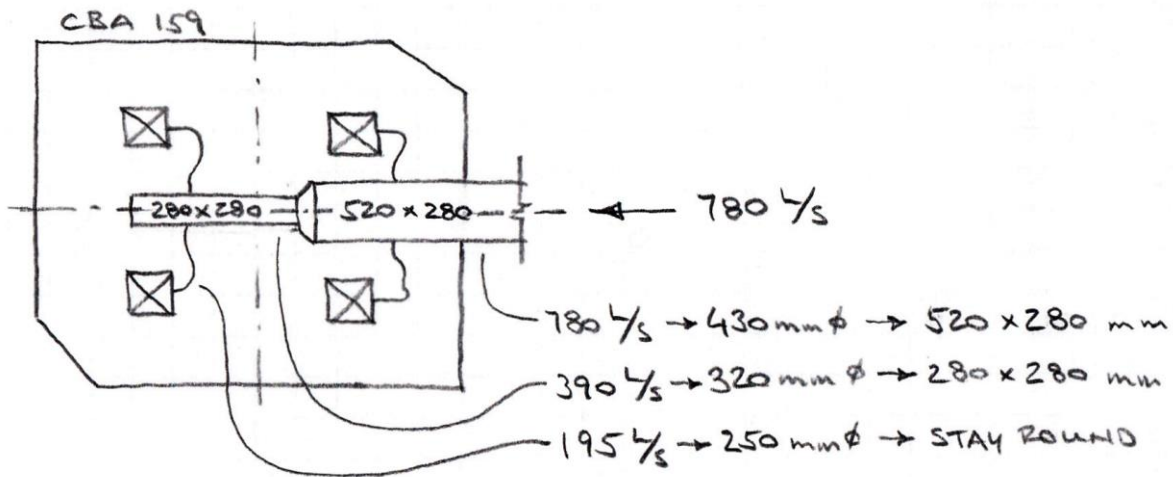 CBA 159
280 x 280
520 x 280
780 L/s
780 L/s → 430 mm ⌀ → 520 x 280 mm
390 L/s → 320 mm ⌀ → 280 x 280 mm
195 L/s → 250 mm ⌀ → STAY ROUND